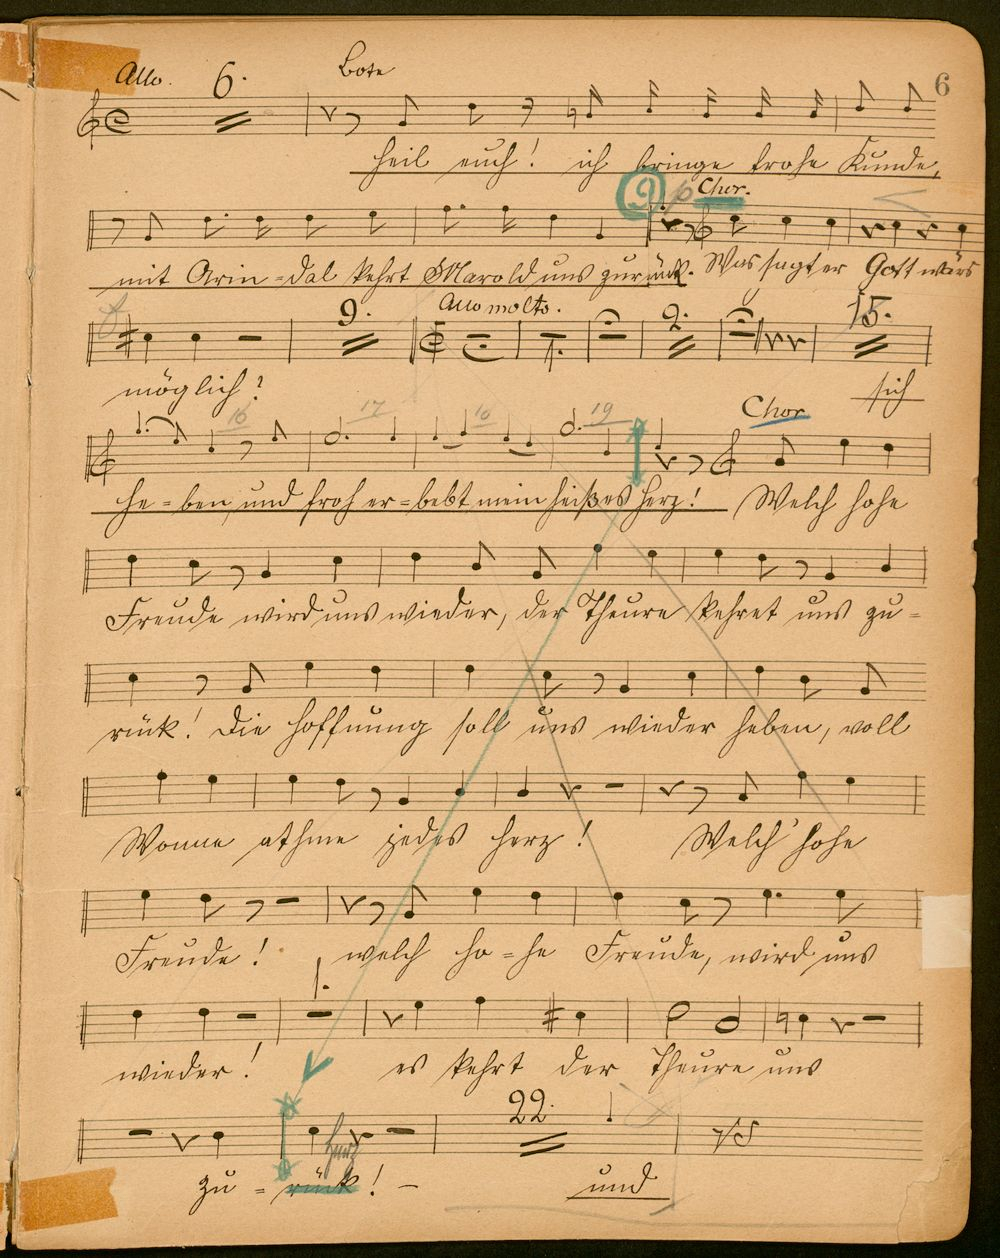 Allo. 6. Bote 6
Heil euch! ich bringe frohe Kunde,
9 p Chor.
mit Arin=dal kehrt Marold uns zurück. Was sagt er Gott wärs
9. Allo molto. 1. 2. 15.
möglich? sich
16 17 18 19 Chor
he=ben, und froh er=bebt mein heißes Herz! Welch hohe
Freude wird uns wieder, der Theure kehret uns zu=
rück! Die Hoffnung soll uns wieder heben, voll
Wonne athme jedes Herz! Welch' hohe
Freude! welch ho=he Freude, wird uns
1.
wieder! es kehrt der Theure uns
22.
Herz VS
zu=rück! – und